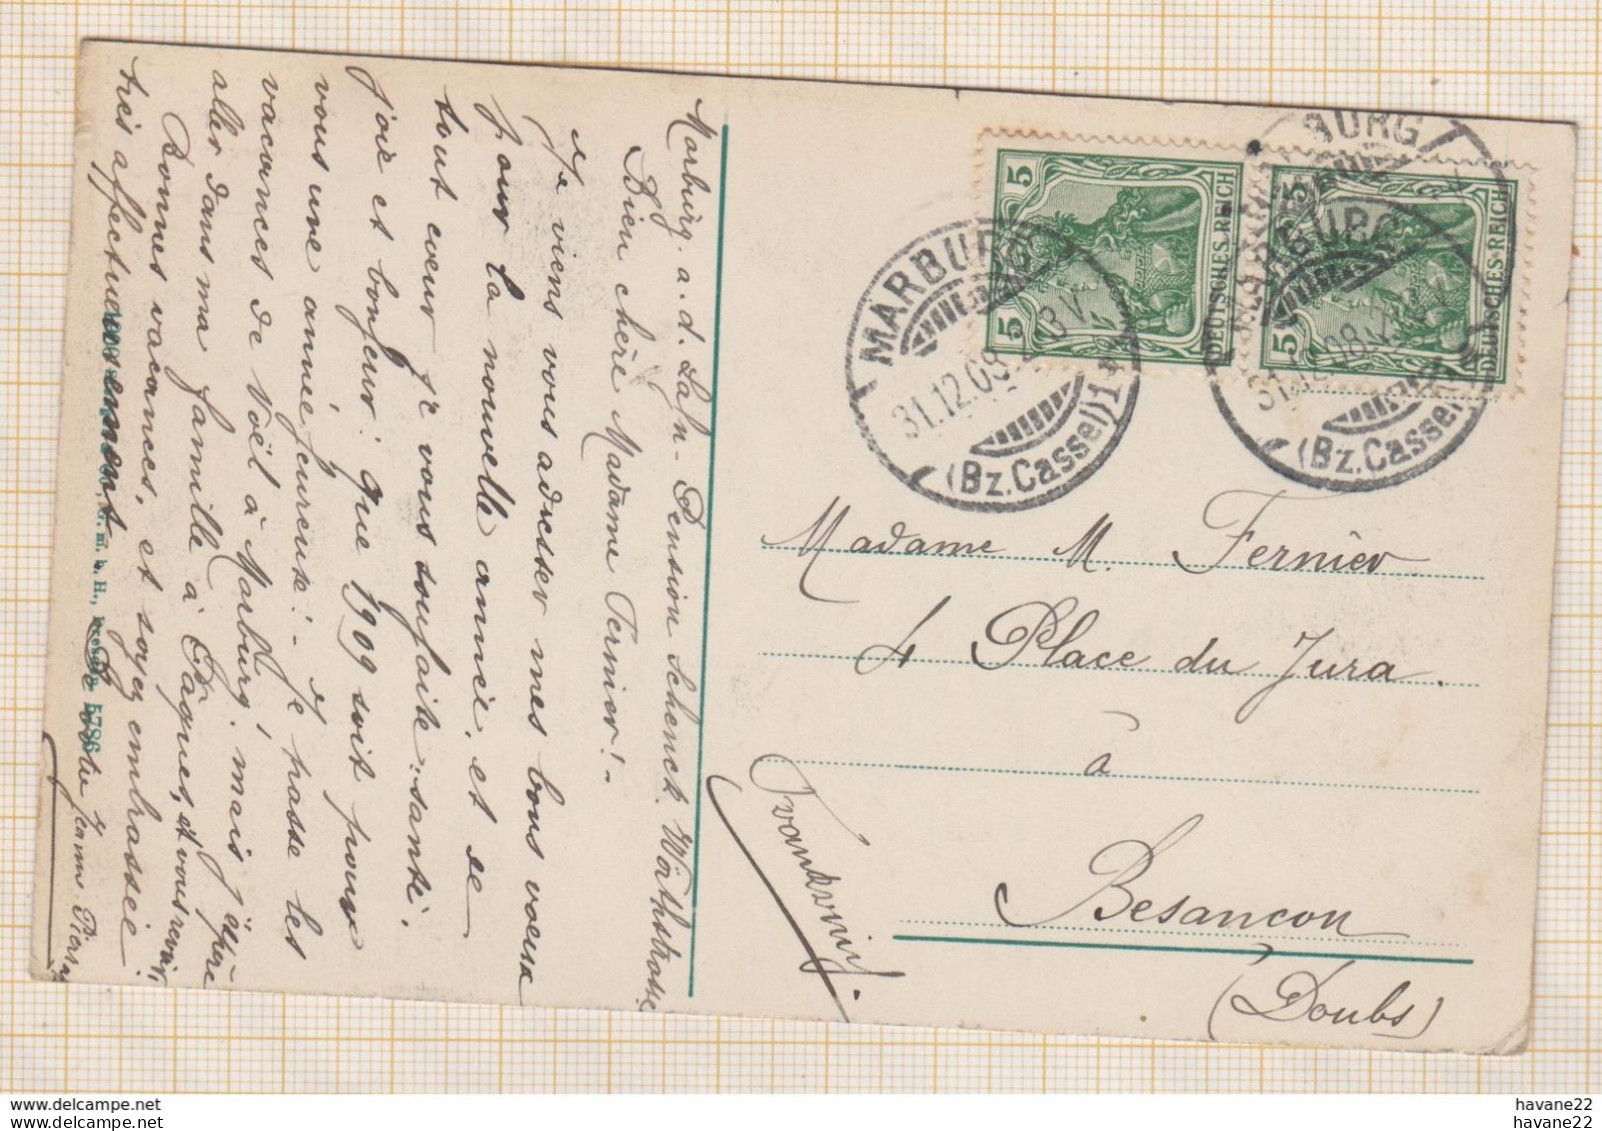 Marburg. a. d. Lahn - Pension Schenck. Wörthstrasse
Bien chère Madame Fernier! -
Je viens vous adresser mes bons voeux
pour la nouvelle année, et de
tout coeur je vous souhaite: santé,
joie et bonheur! que 1909 soit pour
vous une année heureuse! - Je passe les
vacances de Noël à Marburg! mais j'espère
aller dans ma famille à Pâques, et vous revoir,
Bonnes vacances, et soyez embrassée
très affectueusement
De votre Jeanne
G. m. b. H., Dresden 5786
DEUTSCHES REICH
5
5
DEUTSCHES REICH
5
5
MARBURG
31.12.08
(Bz. Cassel) 1
MARBURG
31.12.08
(Bz. Cassel)
BURG
Madame M. Fernier
4 Place du Jura.
à
Besancon
(Doubs)
delcampe.net
delcampe.net
havane22
havane22